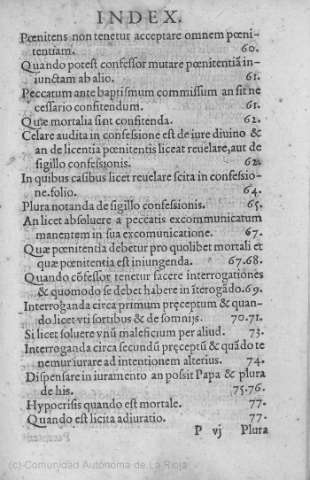 INDEX.
Pœnitens non tenetur acceptare omnem pœni-
tentiam. 60.
Quando potest confessor mutare pœnitentiã in-
iunctam ab alio. 61.
Peccatum ante baptismum commissum an sit ne
cessario confitendum. 61.
Quæ mortalia sint confitenda. 62.
Celare audita in confessione est de iure diuino &
an de licentia pœnitentis liceat reuelare, aut de
sigillo confessionis. 62.
In quibus casibus licet reuelare scita in confessio-
ne. folio. 64.
Plura notanda de sigillo confessionis. 65.
An licet absoluere a peccatis excommunicatum
manentem in sua excomunicatione. 67.
Quæ pœnitentia debetur pro quolibet mortali et
quæ pœnitentia est iniungenda. 67.68.
Quando cõfessor tenetur facere interrogationes
& quomodo se debet habere in īterogãdo. 69.
Interroganda circa primum pręceptum & quan-
do licet vti sortibus & de somnijs. 70.71.
Si licet soluere vnũ maleficium per aliud. 73.
Interroganda circa secundũ pręceptũ & quãdo te
nemur iurare ad intentionem alterius. 74.
Dispensare in iuramento an possit Papa & plura
de his. 75.76.
Hypocrisis quando est mortale. 77.
Quando est licita adiuratio. 77.
P vj Plura
(c) Comunidad Autónoma de La Rioja